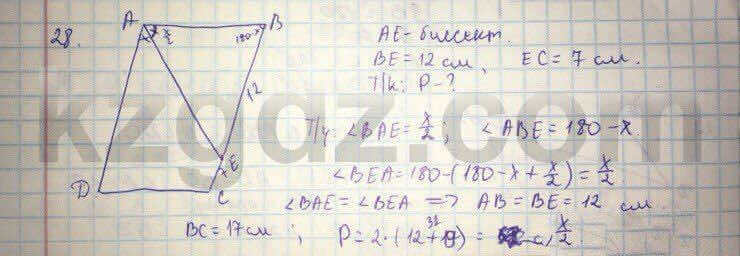 28.
A x/2 B
180-x
12
x E
D C
AE - биссект.
BE = 12 см, EC = 7 см.
Т/к: P - ?
Т/у: ∠BAE = x/2; ∠ABE = 180 - x.
∠BEA = 180 - (180 - x + x/2) = x/2
∠BAE = ∠BEA => AB = BE = 12 см.
BC = 17 см ; P = 2·(12 +
kzgdz.com